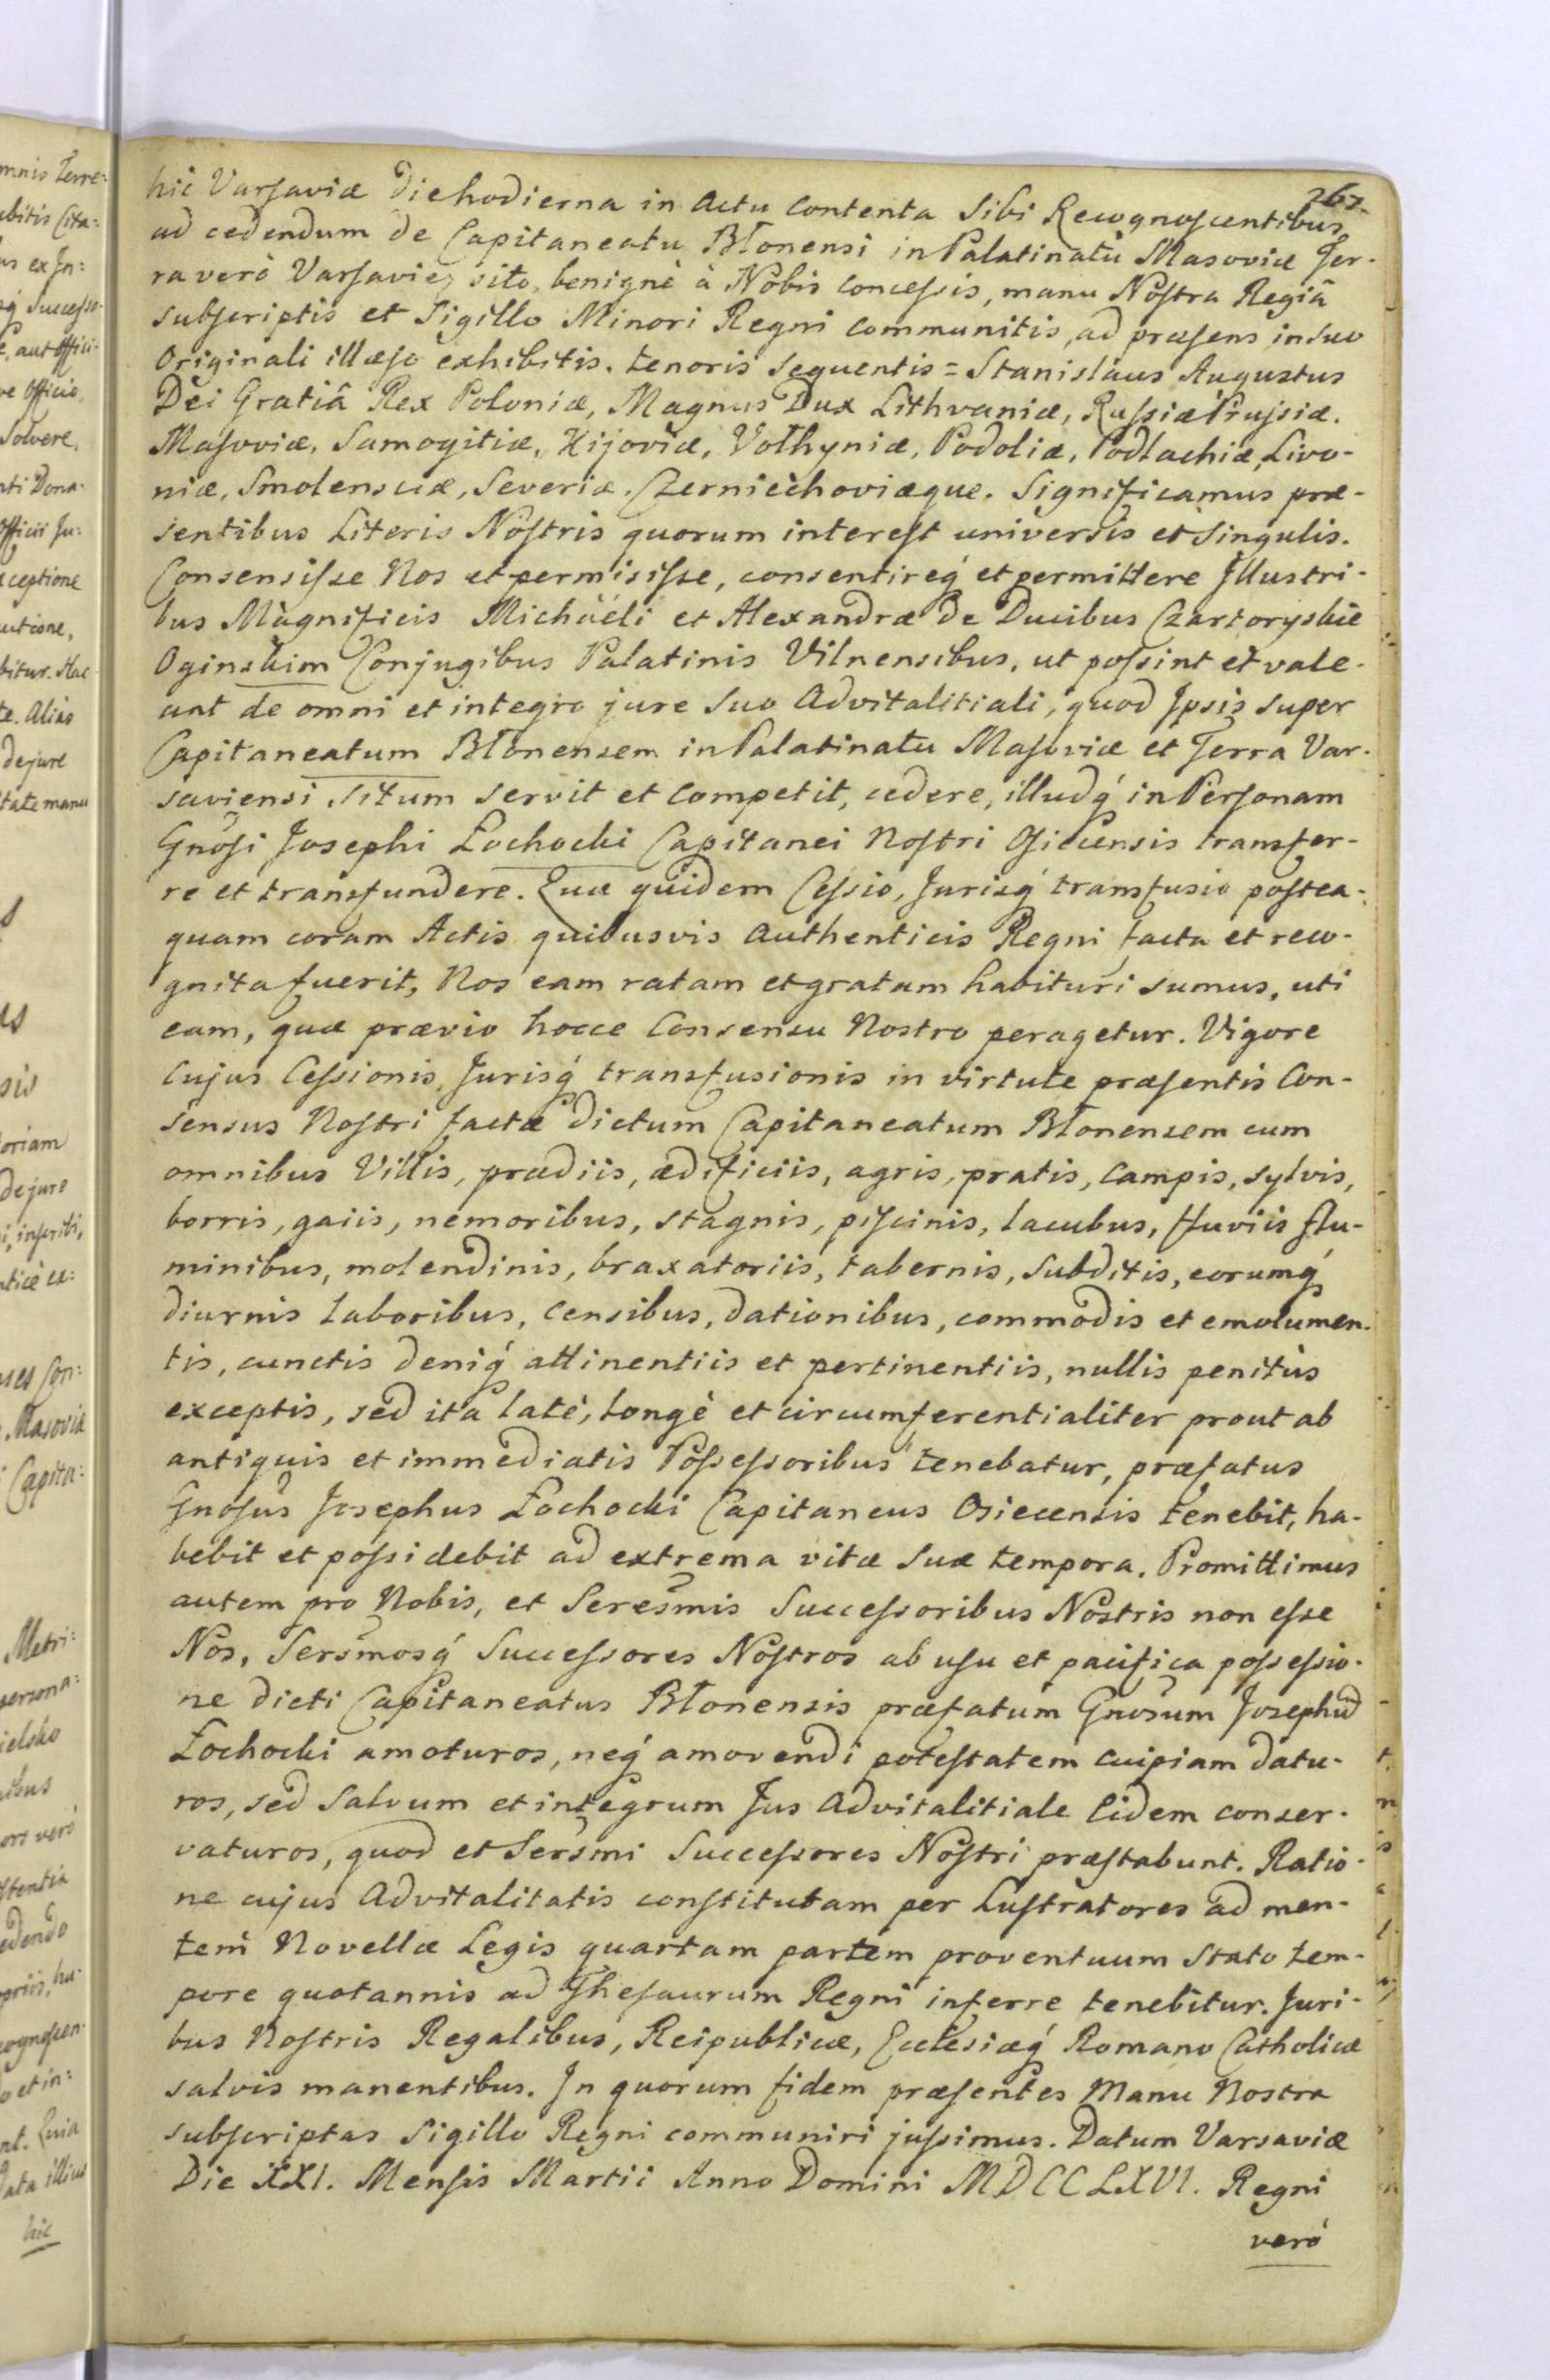 267.
hic Varsaviæ die hodierna in Actu contenta Sibi Recognoscentibus,
ad cedendum de Capitaneatu Błonensi in Palatinatu Masoviæ Ter-
ra verò Varsavien sito, benignè à Nobis concessis, manu Nostra Regiâ
subscriptis et Sigillo Minori Regni communitis, ad præsens in suo
Originali illæso exhibitis. tenoris sequentis = Stanislaus Augustus
Dei Gratiâ Rex Poloniæ, Magnus Dux Lithvaniæ, Russiæ Prussiæ.
Masoviæ, Samogitiæ, Kijoviæ, Vołhyniæ, Podoliæ, Podlachiæ, Livo-
niæ, Smolensciæ, Severiæ. Czerniechoviæque. Significamus præ-
sentibus Literis Nostris quorum interest universis et singulis.
Consensisse Nos et permisisse, consentireq́ et permittere Illustri-
bus Magnificis Michaëli et Alexandræ de Ducibus Czartoryskie
Oginskim Conjugibus Palatinis Vilnensibus, ut possint et vale-
ant de omni et integro jure suo Advitalitiali, quod Ipsis super
Capitaneatum Błonensem in Palatinatu Masoviæ et Terra Var-
saviensi situm servit et competit, cedere, illudq́ in Personam
Gnosi Josephi Łochocki Capitanei Nostri Osiecensis transfer-
re et transfundere. Quæ quidem Cessio, Jurisq́ transfusio postea-
quam coram Actis quibusvis Authenticis Regni facta et reco-
gnita fuerit, Nos eam ratam et gratam habituri sumus, uti
eam, quæ prævio hocce Consensu Nostro peragetur. Vigore
cujus Cessionis, Jurisq́ transfusionis in virtute præsentis Con-
sensus Nostri factæ dictum Capitaneatum Błonensem cum
omnibus Villis, prædiis, ædificiis, agris, pratis, campis, sylvis,
borris, gaiis, nemoribus, stagnis, piscinis, lacubus, fluviis flu-
minibus, molendinis, braxatoriis, tabernis, subditis, eorumq́
diurnis laboribus, censibus, dationibus, commodis et emolumen-
tis, cunctis deniq́ attinentiis et pertinentiis, nullis penitùs
exceptis, sed ita latè, longè et circumferentialiter prout ab
antiquis et immediatis Possessoribus tenebatur, præfatus
Gnosus Josephus Łochocki Capitaneus Osiecensis tenebit, ha-
bebit et possidebit ad extrema vitæ suæ tempora. Promittimus
autem pro Nobis, et Seresmis Successoribus Nostris non esse
Nos, Sersmosq́ Successores Nostros ab usu et pacifica possessio-
ne dicti Capitaneatus Błonensis præfatum Gnosum Josephu
Łochocki amoturos, neq́ amovendi potestatem cuipiam datu-
ros, sed salvum et integrum Jus Advitalitiale Eidem conser-
vaturos, quod et Sersmi Successores Nostri præstabunt. Ratio-
ne cujus Advitalitatis constitutam per Lustratores ad men-
tem Novellæ Legis quartam partem proventuum stato tem-
pore quotannis ad Thesaurum Regni inferre tenebitur. Juri-
bus Nostris Regalibus, Reipublicæ, Ecclesiæq́ Romano Catholicæ
salvis manentibus. In quorum fidem præsentes Manu Nostra
subscriptas Sigillo Regni communiri jussimus. Datum Varsaviæ
Die XXI. Mensis Martii Anno Domini MDCCLXVI. Regni
verò